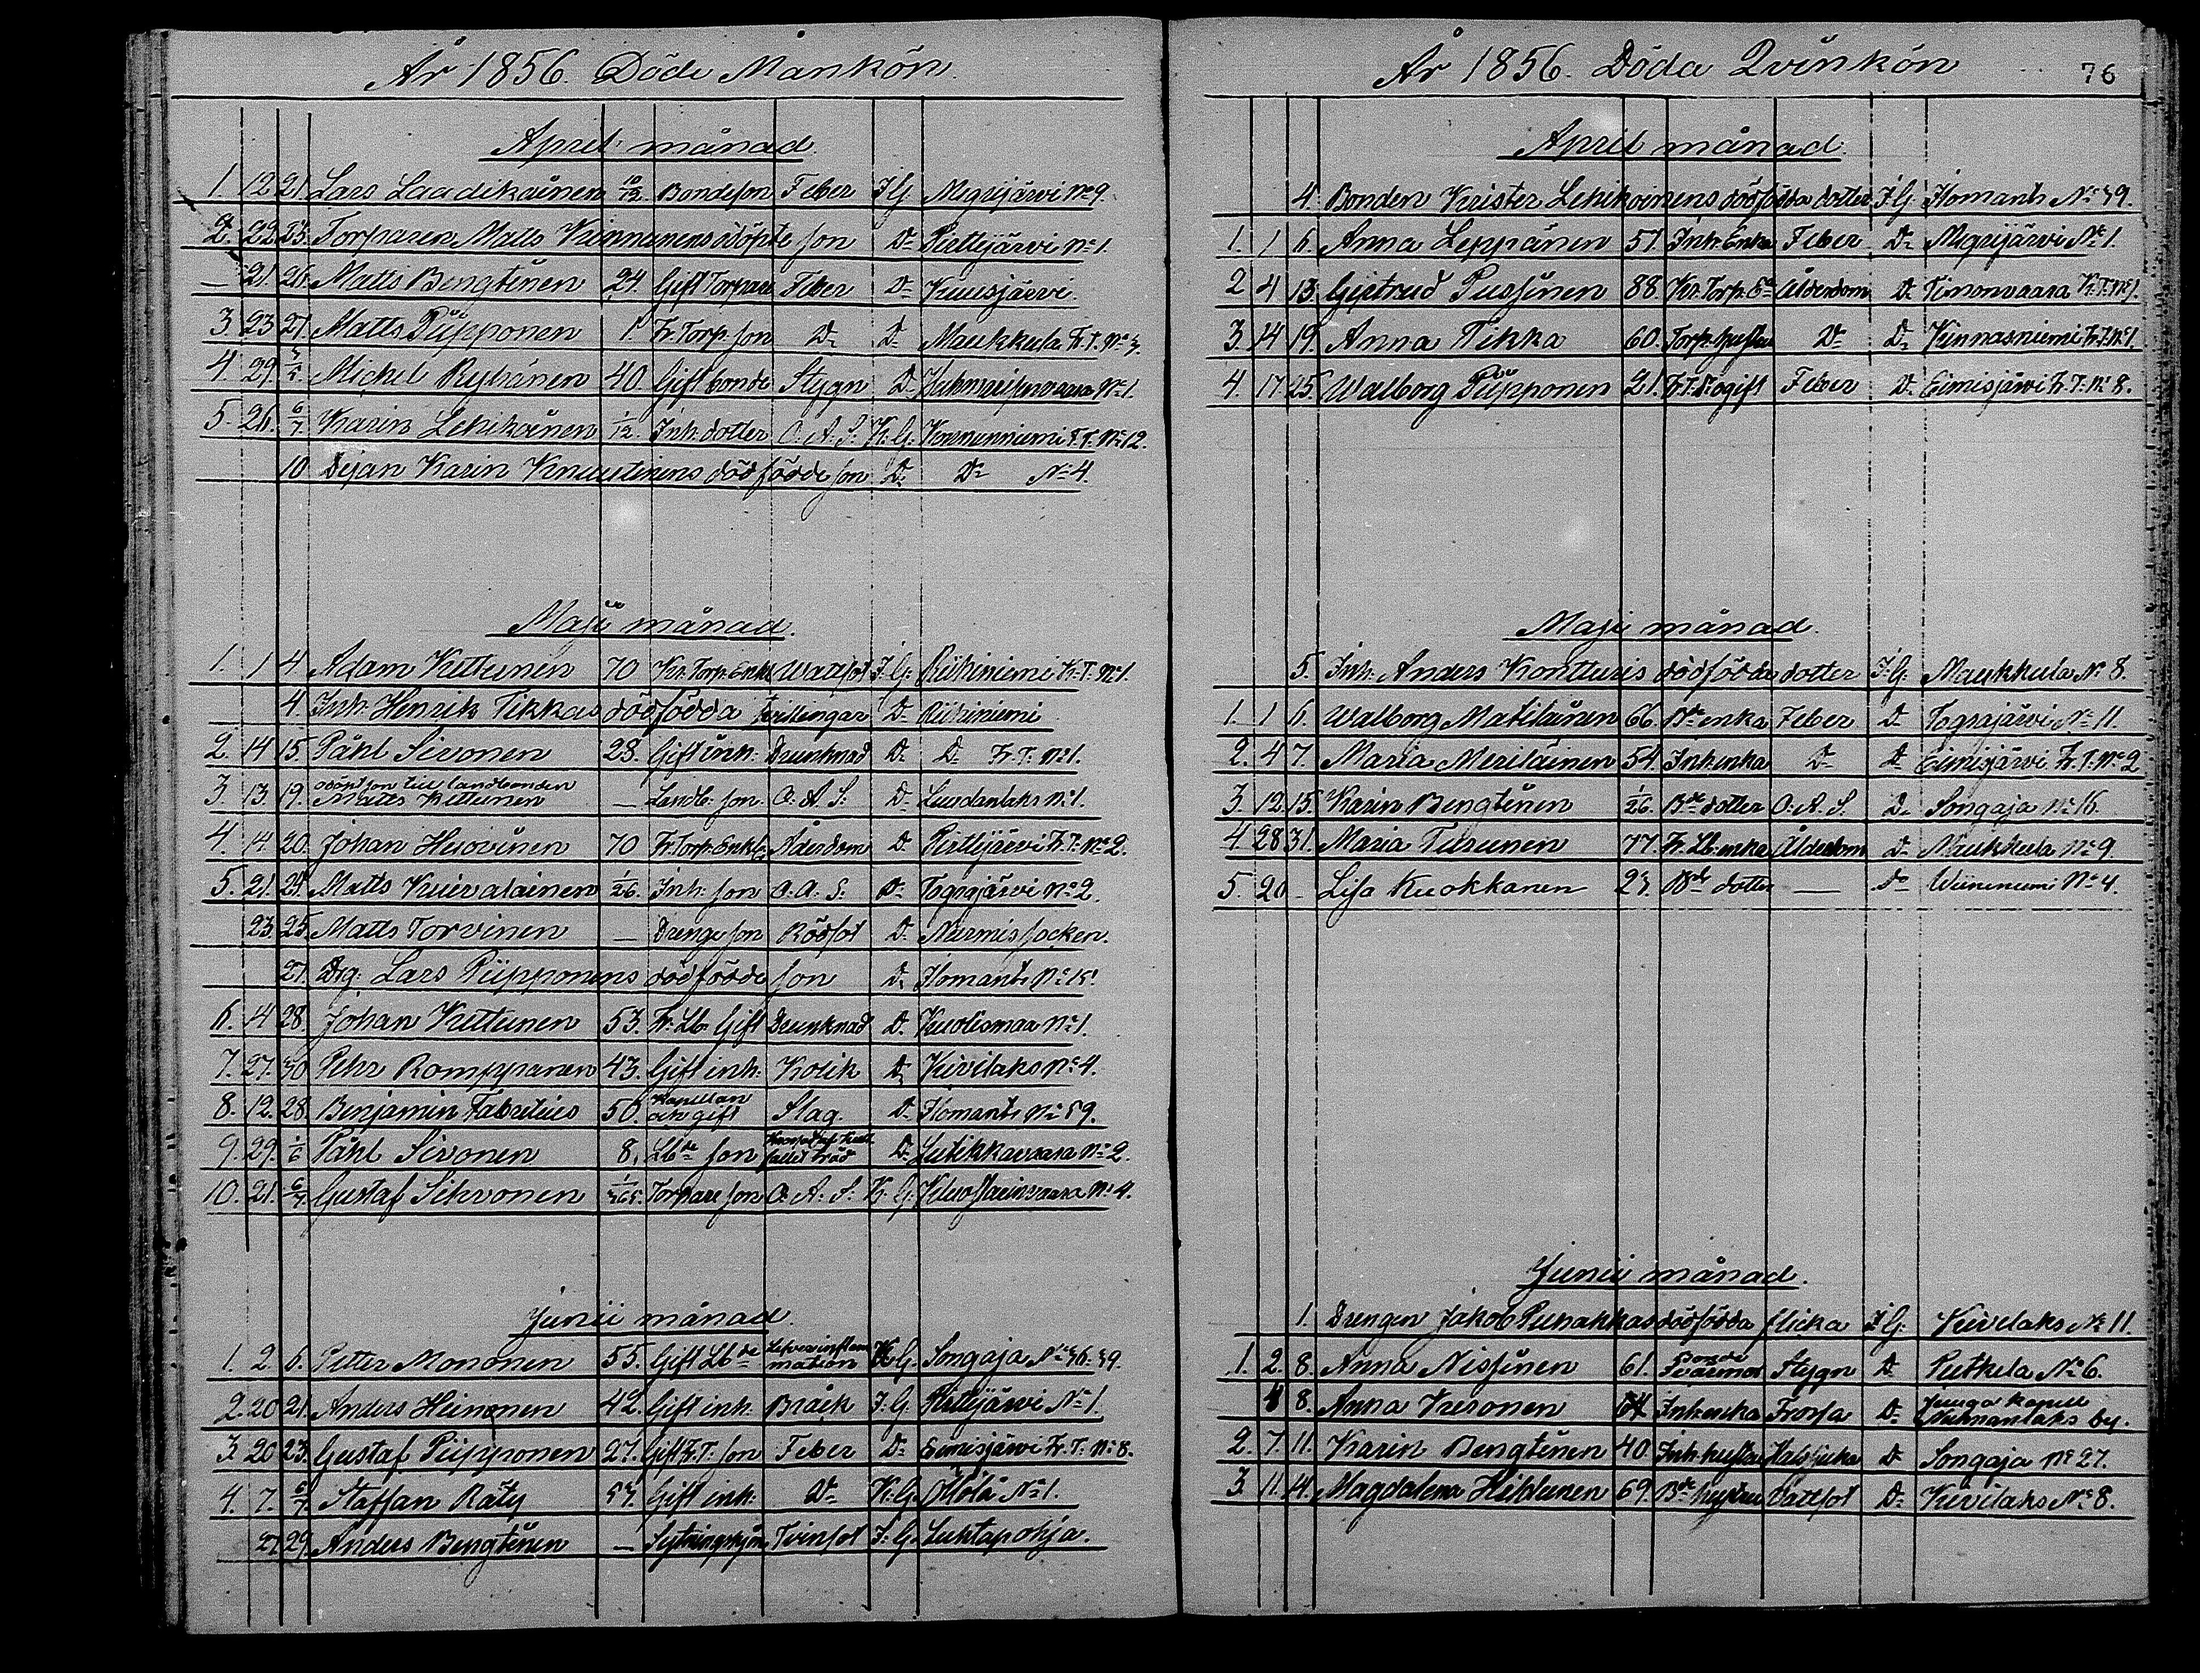 År 1856. Döde Mankön.
April månad.
1. 12 21. Lars Laadikainen 10/12 Bondeson Feber I. G. Megrijärvi No 9.
2. 23. 25. Torparen Matts Kinnunens odöpte son Do Pirttijärvi No 1.
— 21. 26. Matts Bengtinen 24. Gift Torpare Feber Do Kuusjärvi
3 23 27. Matts Piipponen 1. Kr. Torp. son Do Do Maukkula Kr. T. No 3.
4. 29. Michel Ryhänen 40. Gift bonde Stygn Do No 1.
5. 26. 6/7 Karin Lehikoinen 1/12. Inh. dotter O. A. S. K. G. No 12.
10 Pigan Karin Knuutinens dödfödde son Do Do No 4.
Maji månad.
1. 1 4 Adam Kettunen 70 Kr. Torp. Enkl Wattsot I. G. Riihiniemi Kr. T. No 1.
4. Inh. Henrik Tikkas dödfödda tvillingar Do Riihiniemi
2 14 15. Påhl Sivonen 23. Gift inh: Drunknad Do Do Kr. T. No 1.
3. 13. 19. odöpt son till landbonden Matts Kettunen — Landb: son O. A. S: Do No 1.
4. 14 20. Johan Huovinen 70 Kr. Torp. Enkl. Ålderdom Do Pirttijärvi Kr. T. No 2.
5. 21. 24. Matts Kuivalainen 1/26. Inh: son O. A. S: Do No 2.
23. 25. Matts Torvinen — Drenge son Rödsot Do Nurmis socken.
27. Drg: Lars Piipponens dödfödde son Do Ilomants No 15.
6. 14 28. Johan Kettunen 53. Kr. Lb. Gift Drunknad Do Kuolismaa No 1.
7. 27. 30 Pehr Romppanen 43. Gift inh: Kolik Do Kivilaks No 4.
8. 12. 28. Benjamin Fabritius 50. Kapellan och gift Slag. Do Ilomants No 59.
9. 29. 1/6 Påhl Sivonen 8. Lbde son träd Do Lutikkavaara No 2.
10. 21. 6/7 Gustaf Sihvonen 1/365. Torpare son O. A: S: K. G. No 4.
Junii månad.
1. 2. 6. Petter Mononen 55. Gift Lbde Lefverinflammation K G. Songaja No 36: 39.
2. 20 21. Anders Heinonen 42. Gift inh: Bråck I. G. Pirttijärvi No 1.
3. 20 23. Gustaf Piipponen 27. Gift Kr. T: son Feber Do Eimisjärvi Kr. T: No 8.
4. 7. 6/7 Staffan Räty 53. Gift inh: Do K: G. Möla No 1.
27. 29. Anders Bengtinen — Tvinsot I. G. Luhtapohja.
År 1856. Döda Qvinkön 76
April månad.
4. Bonden Krister Lehikoinens dödfödda dotter I. G. Ilomants No 39.
1. 1 6. Anna Leppänen 57. Inh. Enka Feber Do Megrijärvi No 1.
2 4 13. Giertrud Pussinen 88. Kr. Torp. Ea Ålderdom Do Timonvaara Kr. T. No 1.
3. 14 19. Anna Tikka 60. Torp. hustru Do Do Kinnasniemi Kr. T. No 1.
4. 17 25. Walborg Piipponen 21. Kr. T. D. ogift Feber Do Eimisjärvi Kr. T: No 8.
Maji månad.
5. Inh: Anders Kontturis dödfödda dotter I. G: Maukkula No 8.
1. 1 6. Walborg Matilainen 66. Bde enka Feber Do No 11.
2. 4 7. Maria Meriläinen 54. Inh enka Do Do Eimisjärvi Kr. T. No 2
3 12. 15. Karin Bengtinen 1/26. Bde dotter O. A. S. Do Songaja No 16.
4. 28 31. Maria Turunen 77. Kr. Lb. enka Ålderdom Do Maukkula No 9
5 20 – Lisa Kuokkanen 23. Bde dotter — Do Wiiniemi No 4.
Junii månad.
1. Drengen Jakob Punakkas dödfödda flicka I. G: Kivilaks No 11.
1. 2. 8. Anna Nissinen 61. Bonde Svärmor Stygn Do Putkela No 6.
4 8. Anna Kuronen 64 Inh enka Frossa Do Juuga Kapell by.
2. 7. 11. Karin Bengtinen 40 Inh. hustru Halssjuka Do Songaja No 27.
3. 11. 14. Magdalena Hiltunen 69. Bde hustru Vattsot Do Kivilaks No 8.